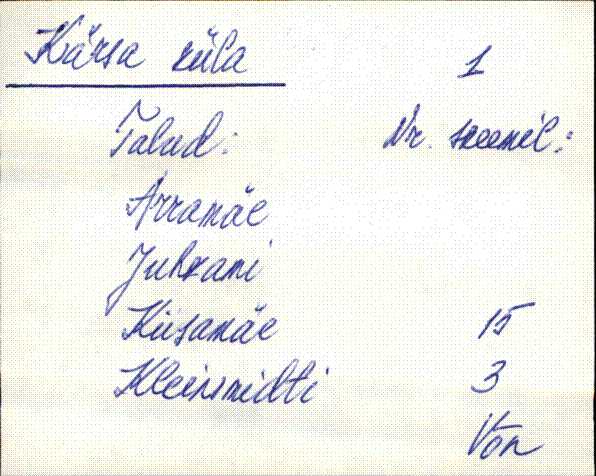 Kärsa küla 1
Talud: Nr. skeemil:
Arramäe
Juhkami
Kiisamäe 15
Kleinsmidti 3
Võn